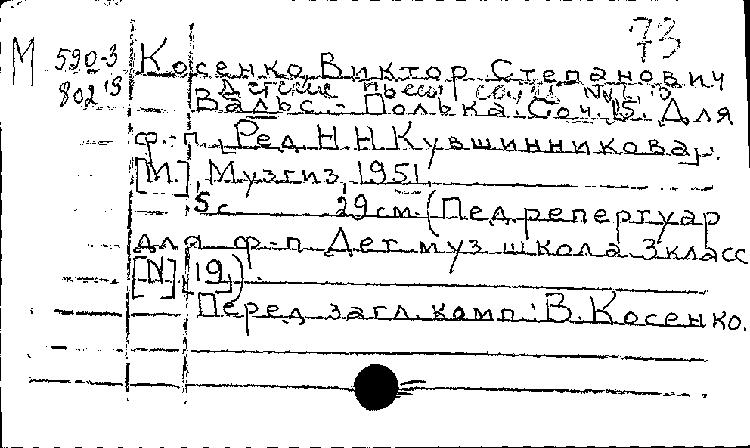 73
М 590-3 Косенко Виктор Степанович
802'13 Детские пьесы соч. 15
Вальс. - Полька. Соч. 15. Для
ф.-п. Ред. Н. Н. Кувшинникова.
[М.], Музгиз, 1951.
5 с. 29 см. (Пед. репертуар
для ф.-п. Дет. муз. школа 3 класс
[N] [19]).
Перед загл. комп.: В. Косенко.